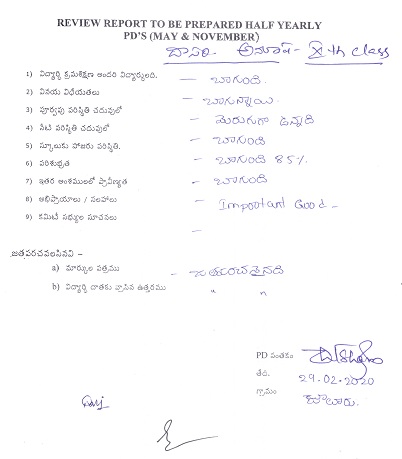 REVIEW REPORT TO BE PREPARED HALF YEARLY
PD'S (MAY & NOVEMBER)
దాసరి అమూష - Xth class
1) విద్యార్థి క్రమశిక్షణ అందరి విద్యార్థులది. - బాగుంది.
2) వినయ విధేయతలు - బాగున్నాయి.
3) పూర్వపు పరిస్థితి చదువులో - మెరుగుగా ఉన్నాది
4) నేటి పరిస్థితి చదువులో - బాగుంది
5) స్కూలుకు హాజరు పరిస్థితి. - బాగుంది 85%
6) పరిశుభ్రత - బాగుంది
7) ఇతర అంశములలో ప్రావీణ్యత
8) అభిప్రాయాలు / సలహాలు - Important Good -
9) కమిటీ సభ్యుల సూచనలు -
జతపరచవలసినవి -
a) మార్కుల పత్రము - జతపరచడమైనది
b) విద్యార్థి దాతకు వ్రాసిన ఉత్తరము " "
PD సంతకం
తేది. 29.02.2020
గ్రామం జూలూరు.